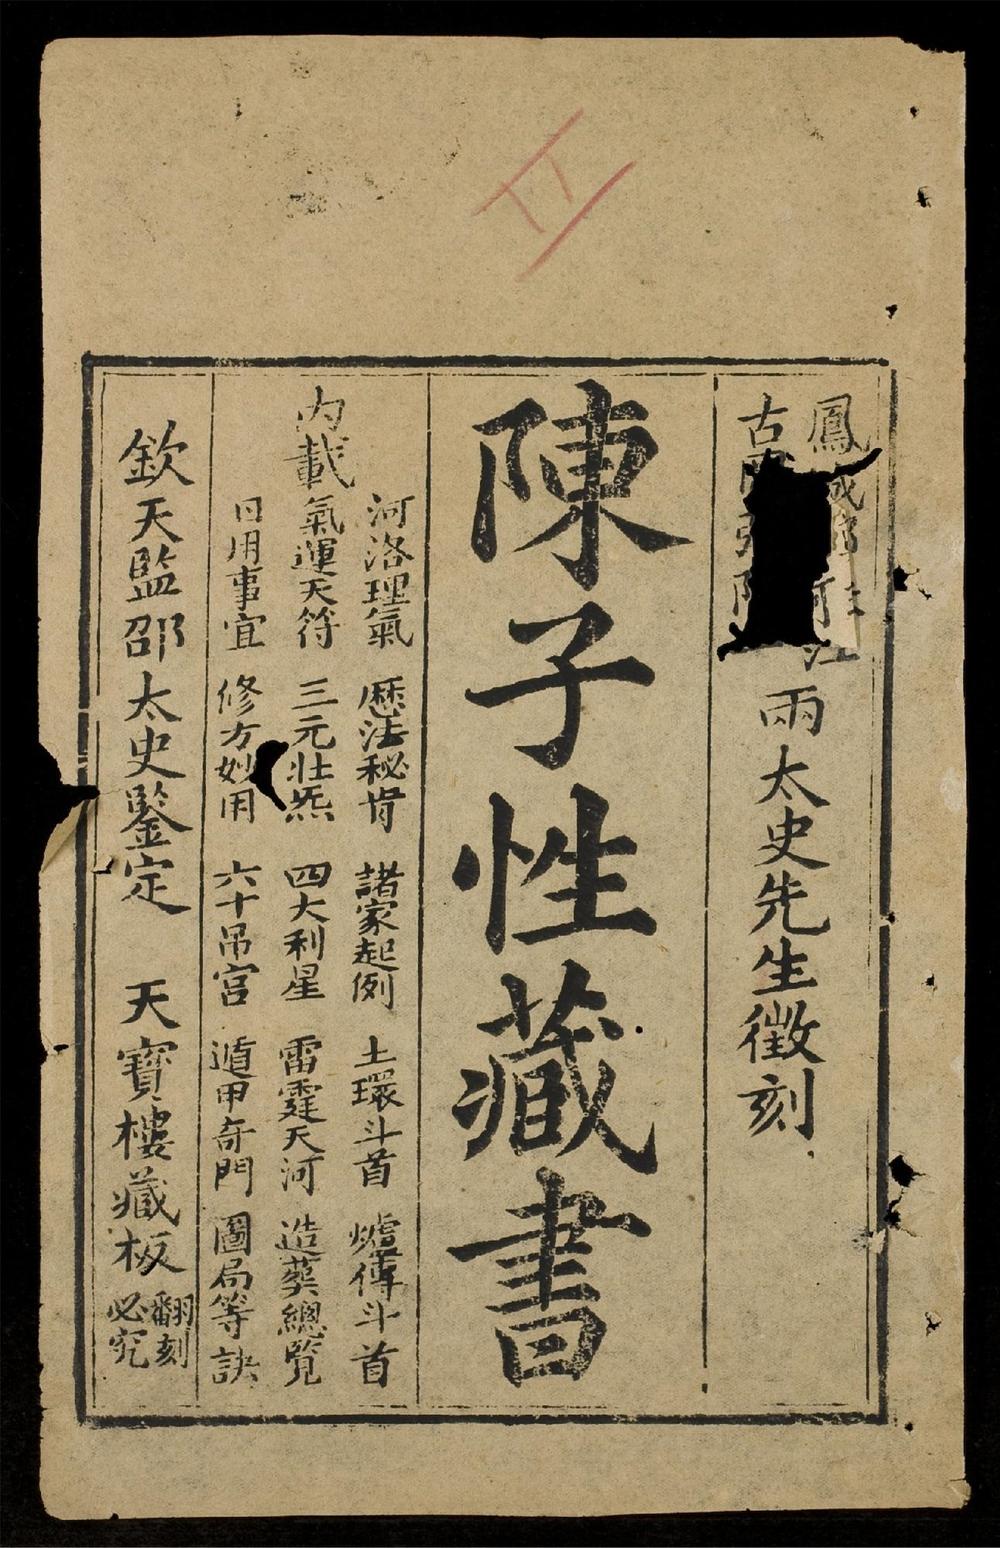 鳳城
古
兩太史先生徵刻
陳子性藏書
内載
河洛理氣 厯法秘旨 諸家起例 土環斗首 爐傳斗首
氣運天符 三元壯炁 四大利星 雷霆天河 造葬總覧
日用事宜 修方妙用 六十吊宫 遁甲奇門 圖局等訣
欽天監邵太史鑒定 天寶樓藏板
翻刻
必究